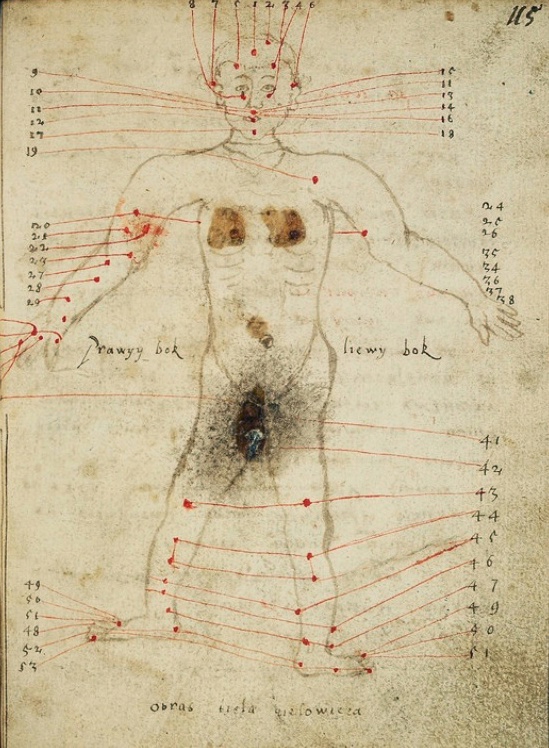 115
8 7 5 1 2 3 4 6
9
10
11
12
17
19
15
11
13
14
16
18
20
21
22
23
27
28
29
24
25
26
35
34
36
37
38
Prawyy bok
liewy bok
41
42
43
44
45
46
47
49
40
51
49
50
51
48
52
53
obras